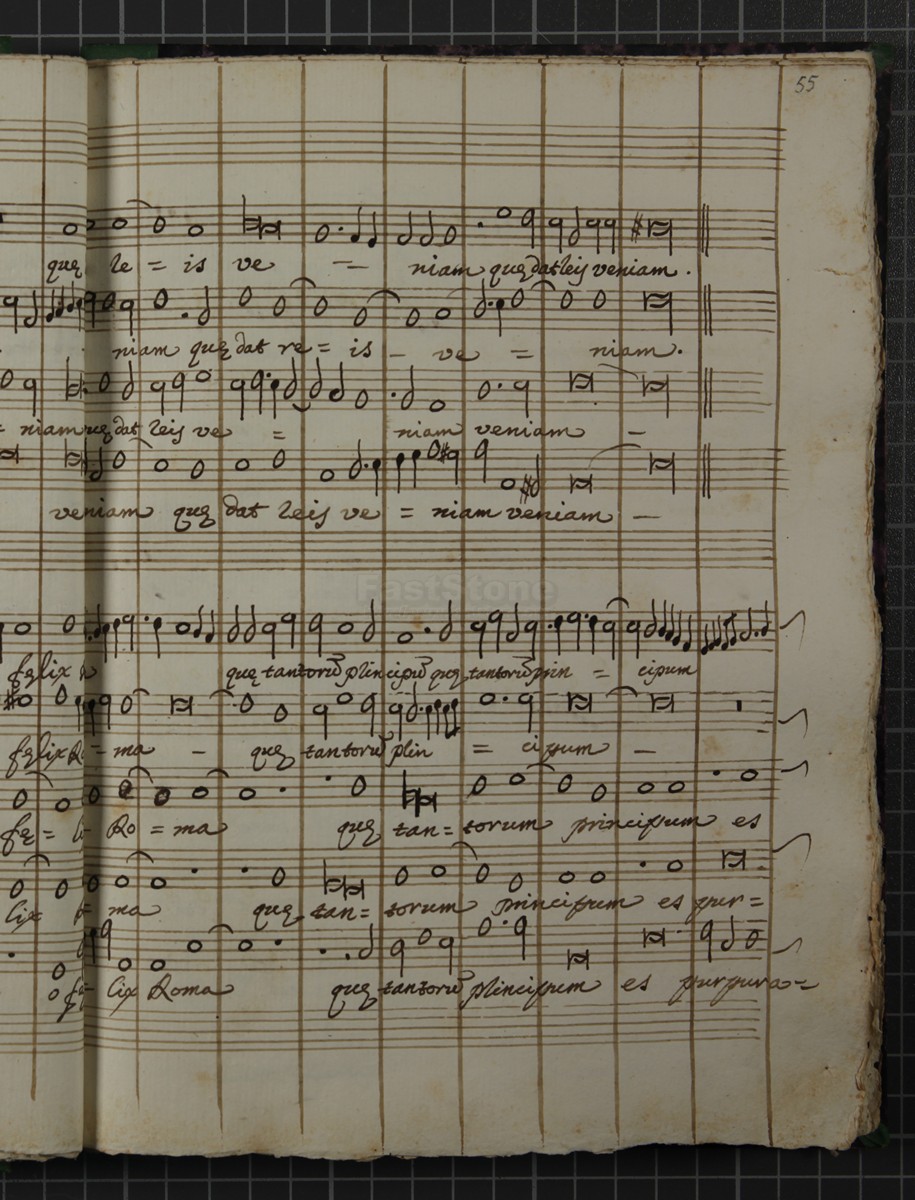 55
que re = is ve — niam que dat reis veniam.
niam que dat re = is – ve = niam.
= niam que dat reis ve = niam veniam –
veniam que dat reis ve = niam veniam –
FastStone
felix que tantorũ principũ que tantorũ prin = cipum
felix R = ma – que tantorũ prin = cipum –
fe = li Ro = ma que tan = torum principum es
lix ma que tan = torum principum es pur =
fe = lix Roma que tantorũ principum es purpura =